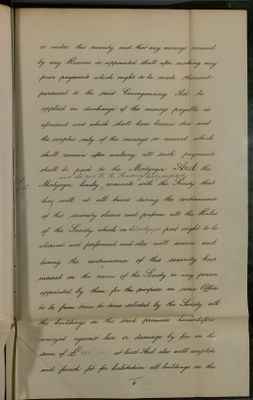 or under this security and that any moneys received
by any Receiver so appointed shall after making any
prior payments which ought to be made thereout
pursuant to the said Conveyancing Act be
applied in discharge of the moneys payable as
aforesaid and which shall have become due and
the surplus only of the moneys so received which
shall remain after making all such payments
shall be paid to the Mortgagor And the
Mortgagor hereby covenants with the Society that
they will at all times during the continuance
of this security observe and perform all the Rules
of the Society which on part ought to be
observed and performed and also will insure and
during the continuance of this security keep
insured in the names of the Society or any person
appointed by them for the purpose in some Office
to be from time to time selected by the Society all
the buildings on the said premises hereinbefore
assigned against loss or damage by fire in the
sum of £ at least And also will complete
and finish fit for habitation all buildings on the